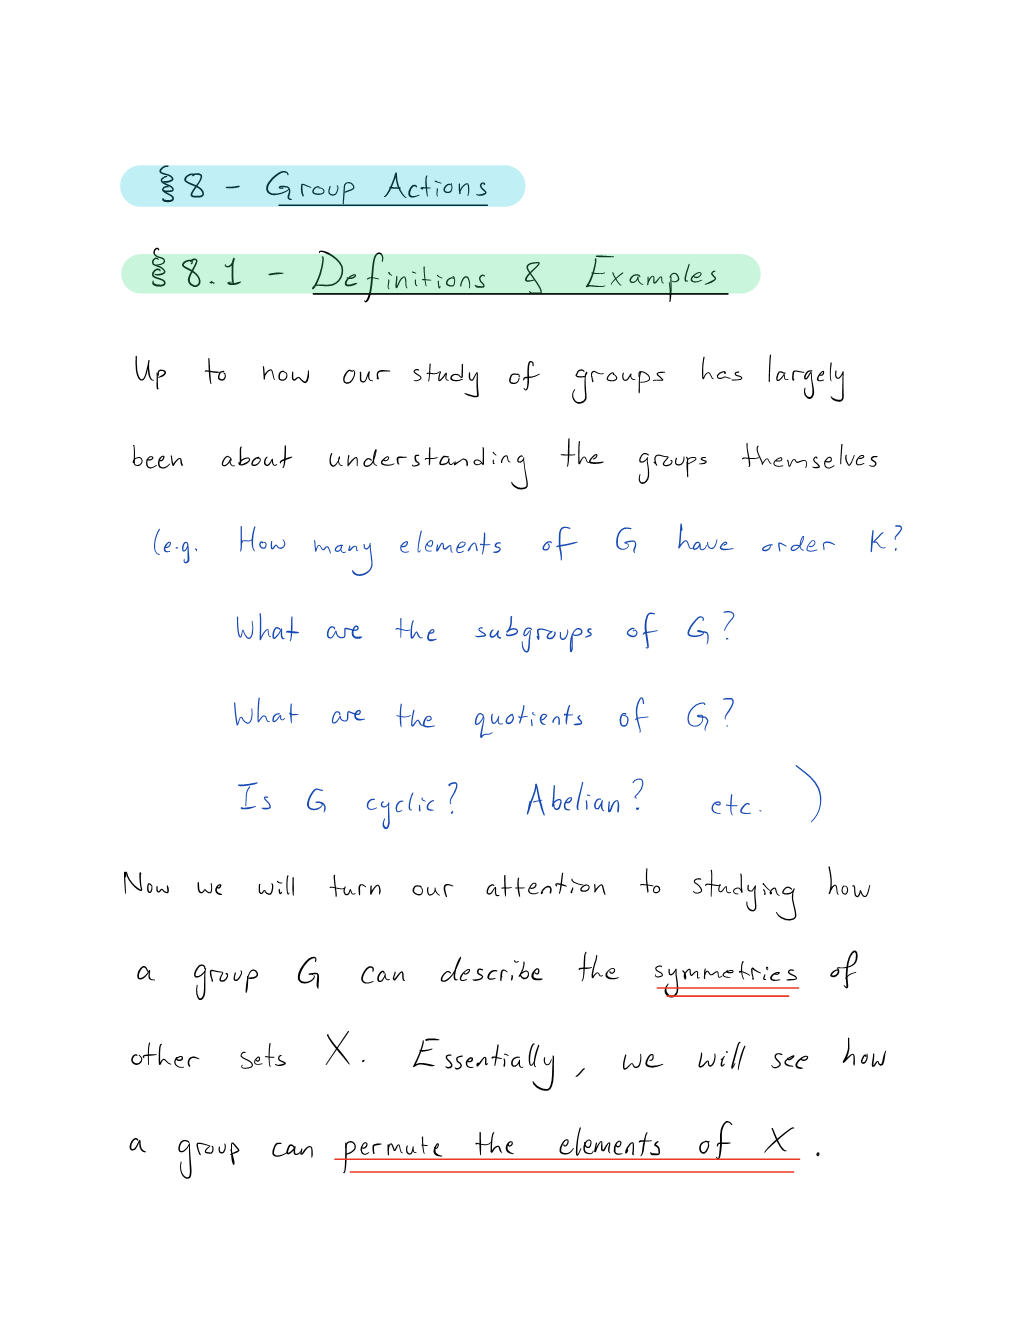 §8 - Group Actions
§8.1 - Definitions & Examples
Up to now our study of groups has largely
been about understanding the groups themselves
(e.g. How many elements of G have order K?
What are the subgroups of G?
What are the quotients of G?
Is G cyclic? Abelian? etc. )
Now we will turn our attention to studying how
a group G can describe the symmetries of
other sets X. Essentially, we will see how
a group can permute the elements of X.